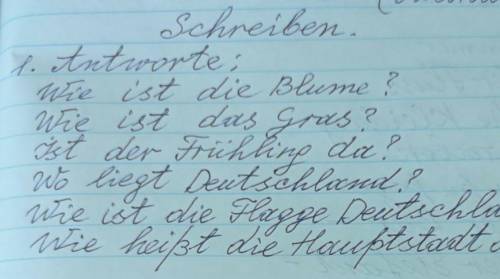 Schreiben.
1. Antworte:
Wie ist die Blume?
Wie ist das Gras?
Ist der Frühling da?
Wo liegt Deutschland?
Wie ist die Flagge Deutschla
Wie heißt die Hauptstadt